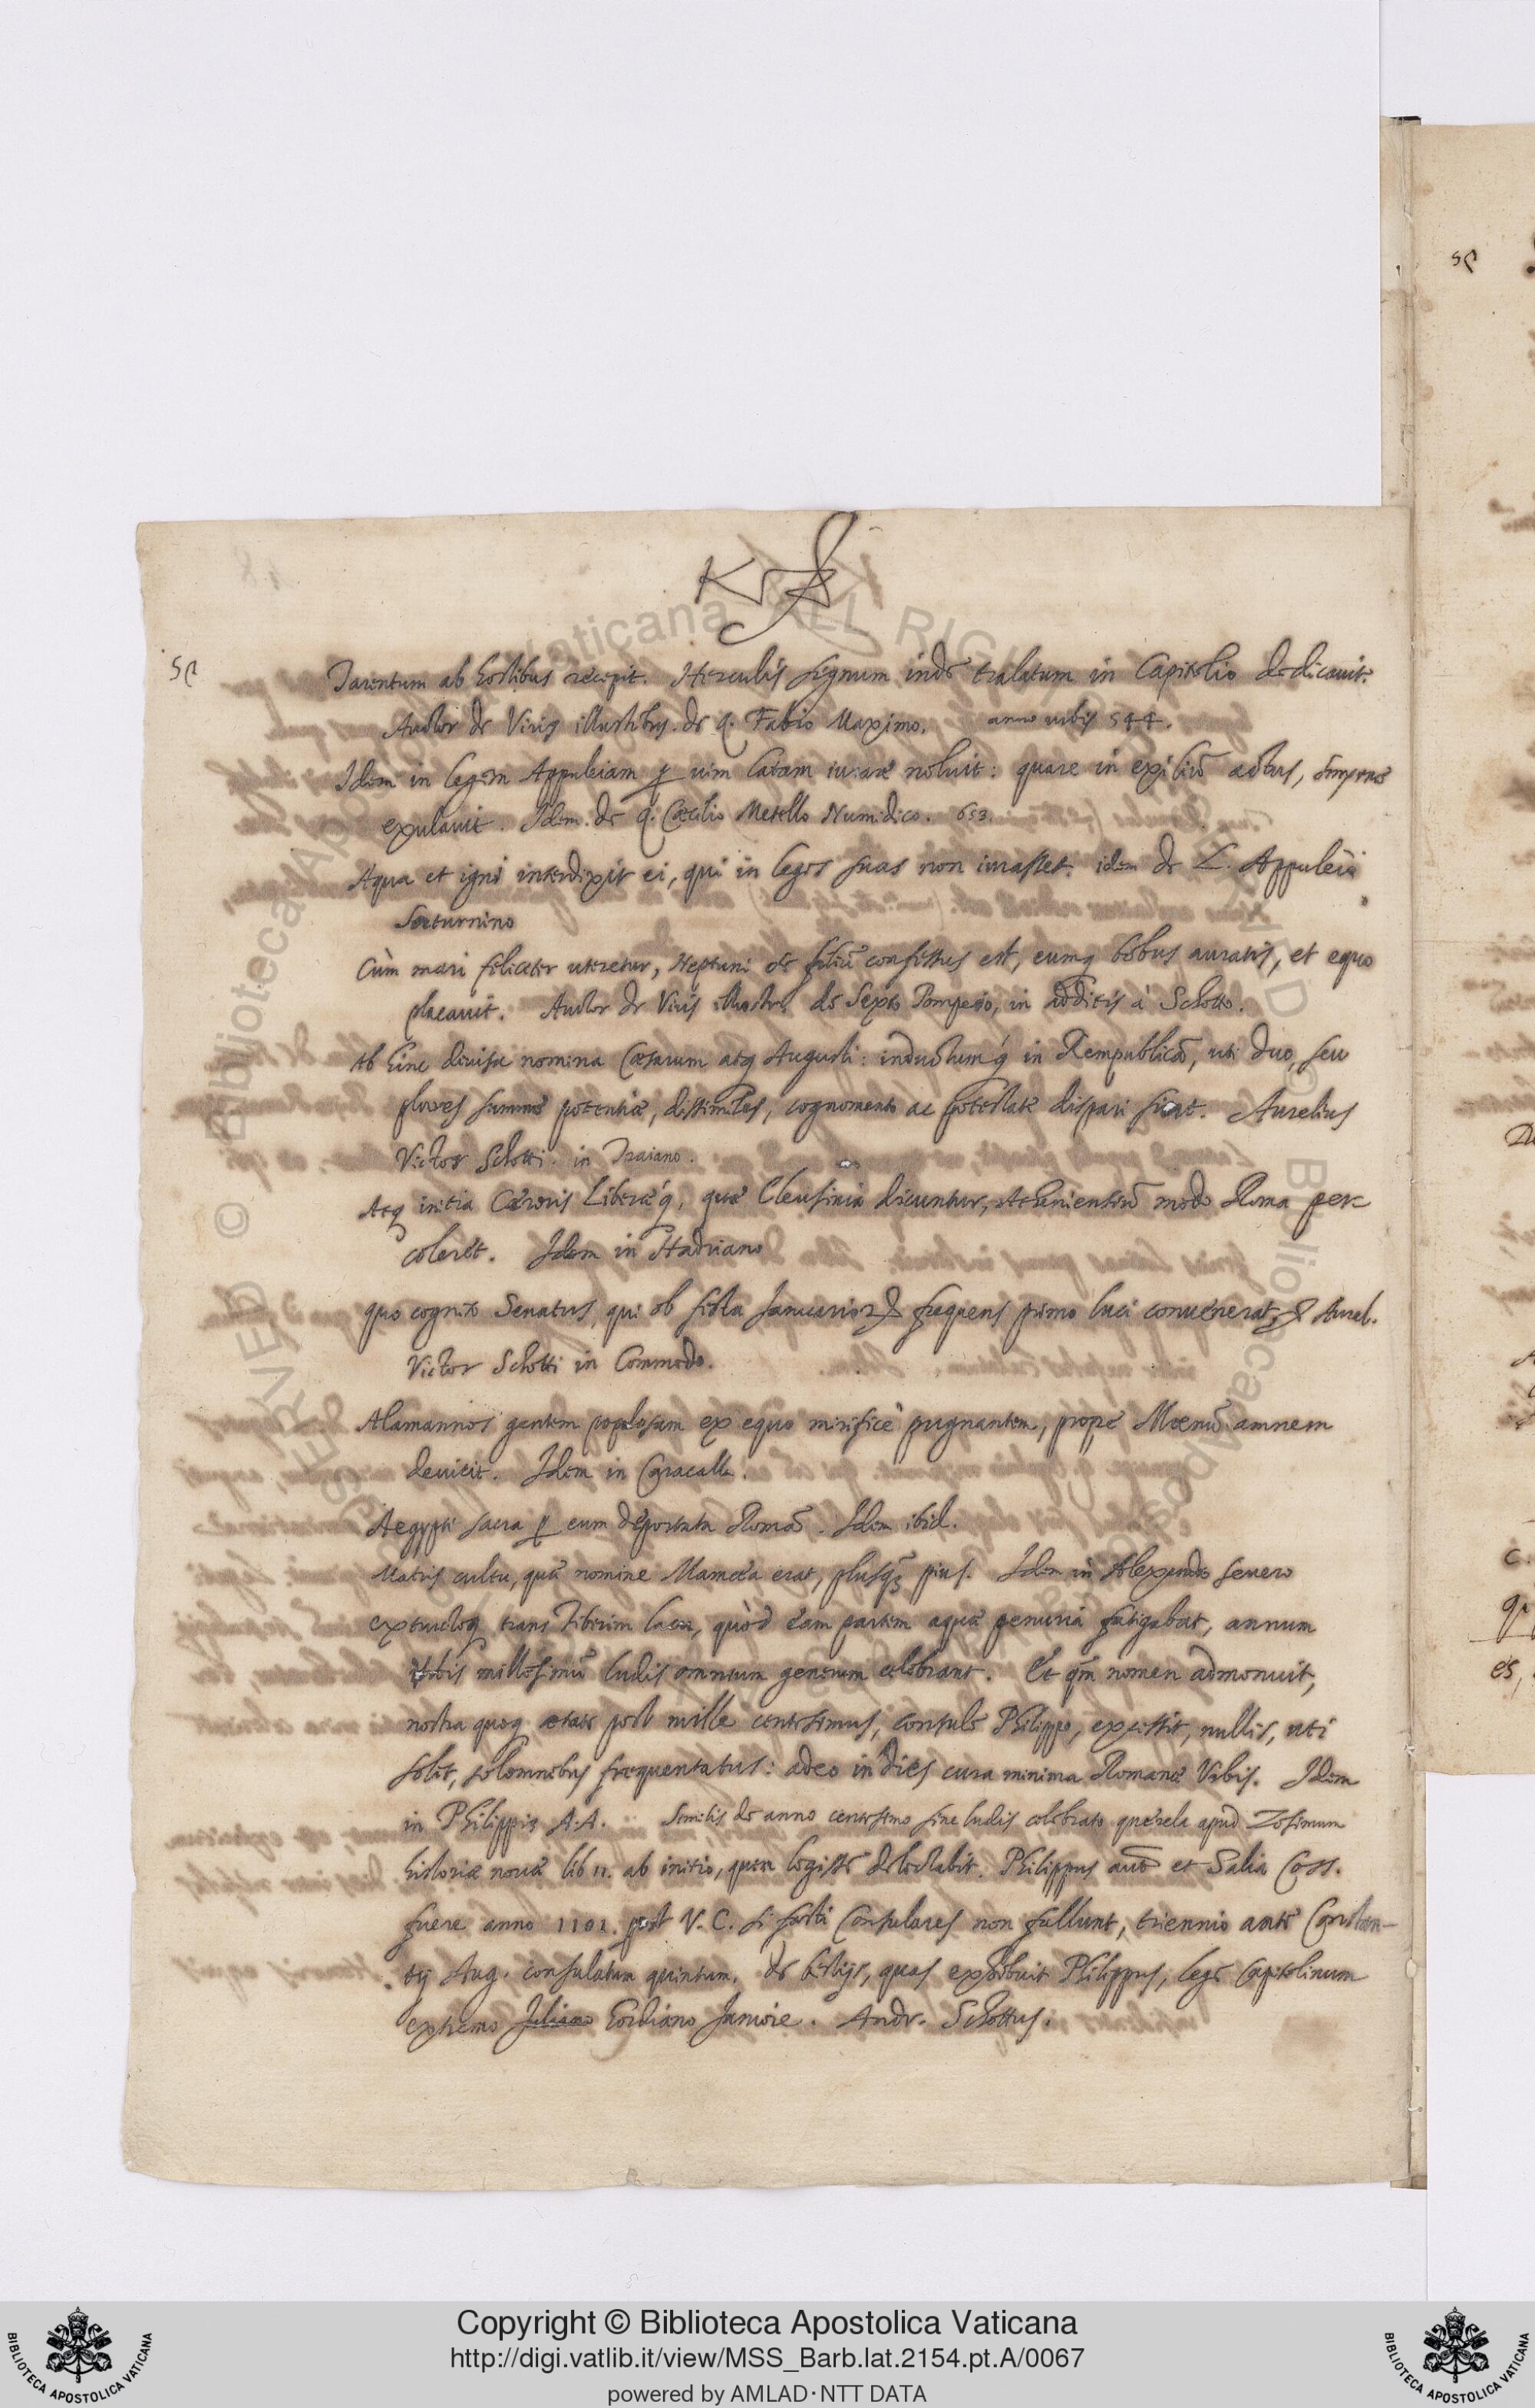 Tarentum ab hostibus recepit. Herculis signum inde tralatum in Capitolio dedicauit.
Auctor de Viris illustribus. de Q. Fabio Maximo. anno urbis 544.
Idem in legem Appuleiam ꝑ uim latam iurare noluit: quare in exiliũ actus,
exulauit. Idem. de Q. Cæcilio Metello Numidico. 653.
Aqua et igni interdixit ei, qui in leges suas non iurasset. idem de L. Appuleio
Saturnino
Cùm mari feliciter uteretur, Neptuni se filiũ confessus est, eumq bobus auratis, et equo
placauit. Auctor de Viris illustr. de Sexto Pompeio, in additis à Schotto.
Ab hinc diuisa nomina Cæsarum atq Augusti: inductumq́ in Rempublicã, uti duo, seu
plures summæ potentiæ, dissimiles, cognomento ac potestate dispari sient. Aurelius
Victor Schotti. in Traiano.
Atq initia Cæreris Liberæq́, quæ Eleusinia dicuntur, Atheniensiũ modo Roma per-
coleret. Idem in Hadriano
quo cognito Senatus, qui ob festa Januarioꝝ frequens primo luci conuenerat, & Aurel.
Victor Schotti in Commodo.
Alamannos gentem populosam ex equo mirificè pugnantem, prope Mœnũ amnem
deuicit. Idem in Caracalla.
Aegypti sacra ꝑ eum deportata Romã. Idem ibid.
Matris cultu, quæ nomine Mamæa erat, plusq̃ pius. Idem in Alexandro Seuero
extructoq trans Tiberim lacu, quòd eam partem aquæ penuria fatigabat, annum
Vrbis millesimũ ludis omnium generum celebrant. Et qm̃ nomen admonuit,
nostra quoq ætate post mille centesimus, Consule Philippo, excessit, nullis, uti
solet, solemnibus frequentatus: adeo in dies cura minima Romanæ Vrbis. Idem
in Philippis A.A. Similis de anno centesimo sine ludis celebrato querela apud Zosimum
historiæ nouæ lib II. ab initio, quem legisse delectabit. Philippus autẽ et Salia Coss.
fuere anno 1101. post V. C. si fasti Consulares non fallunt, triennio ante Constan-
tij Aug. consulatum quintum. de bestijs, quas exhibuit Philippus, lege Capitolinum
extremo Gordiano Juniore. Andr. Schottus.
Copyright © Biblioteca Apostolica Vaticana
http://digi.vatlib.it/view/MSS_Barb.lat.2154.pt.A/0067
powered by AMLAD·NTT DATA